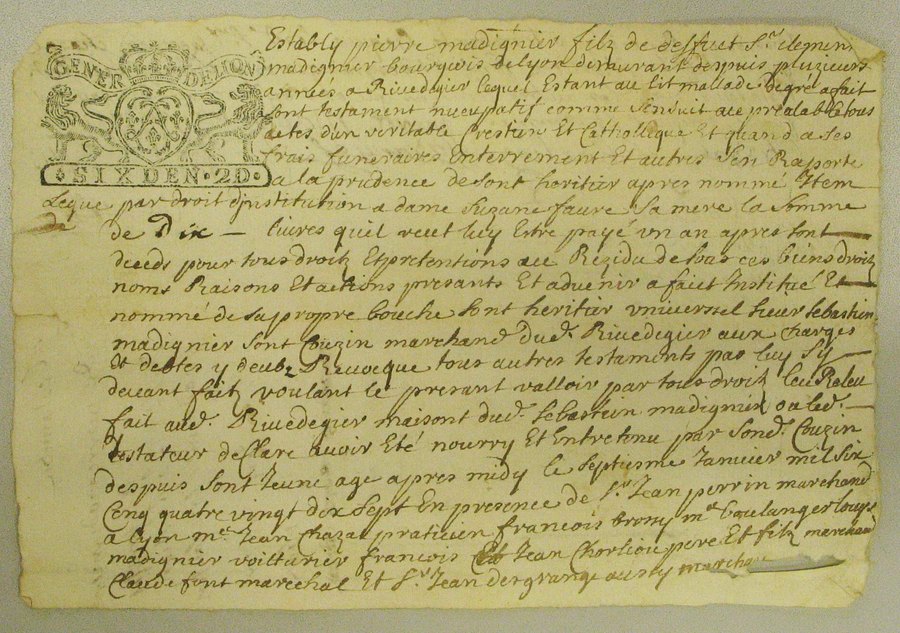 GENER DELION
SIX DEN · 20 ·
Estably pierre madignier filz de deffuct Sr. clemen
madignier bourgois de lyon demeurant despuis pluzieurs
années a Rivedegier lequel Estant au lit mallade degré a fait
sont testament nuncupatif comme sensuit au prealable tous
actes d'un veritable Crestien Et Catthollique Et quand a ses
frais funeraires Enterrement Et autres sen Raporte
a la prudence de sont heritier apres nommé Item
Legue par droit d'institution a dame Suzane faure sa mere la somme
de Dix — livres quil veut luy Estre payé un an apres sont
deceds pour tous droitz Et pretentions au Rezidu de tous ces biens droitz
noms Raisons Et actions presants Et advenir a faict Institué Et
nommé de sa propre bouche sont heritier universel sieur sebastien
madignier sont Couzin marchand dud. Rivedegier aux charges
Et debtes y deubz Revoque tous autres testaments par luy Sy
devant faitz voulant le presant valloir par tous droitz
fait aud. Rivedegier maisont dud. sebastein madignier ou led. —
testateur desclare avoir Eté nourry Et Entretenu par sond. Couzin
despuis sont Jeune age apres midy le septiesme Janvier mil six
Cenq quatre vingt dix sept En presence de Sr. Jean perrin marchand
a lyon me. Jean Chazal praticien francois brony me. boulanger louys
madignier voitturier francois Et Jean Chorliou pere Et filz marchand
Claude font marechal Et Sr. Jean dergrange aussy marchand